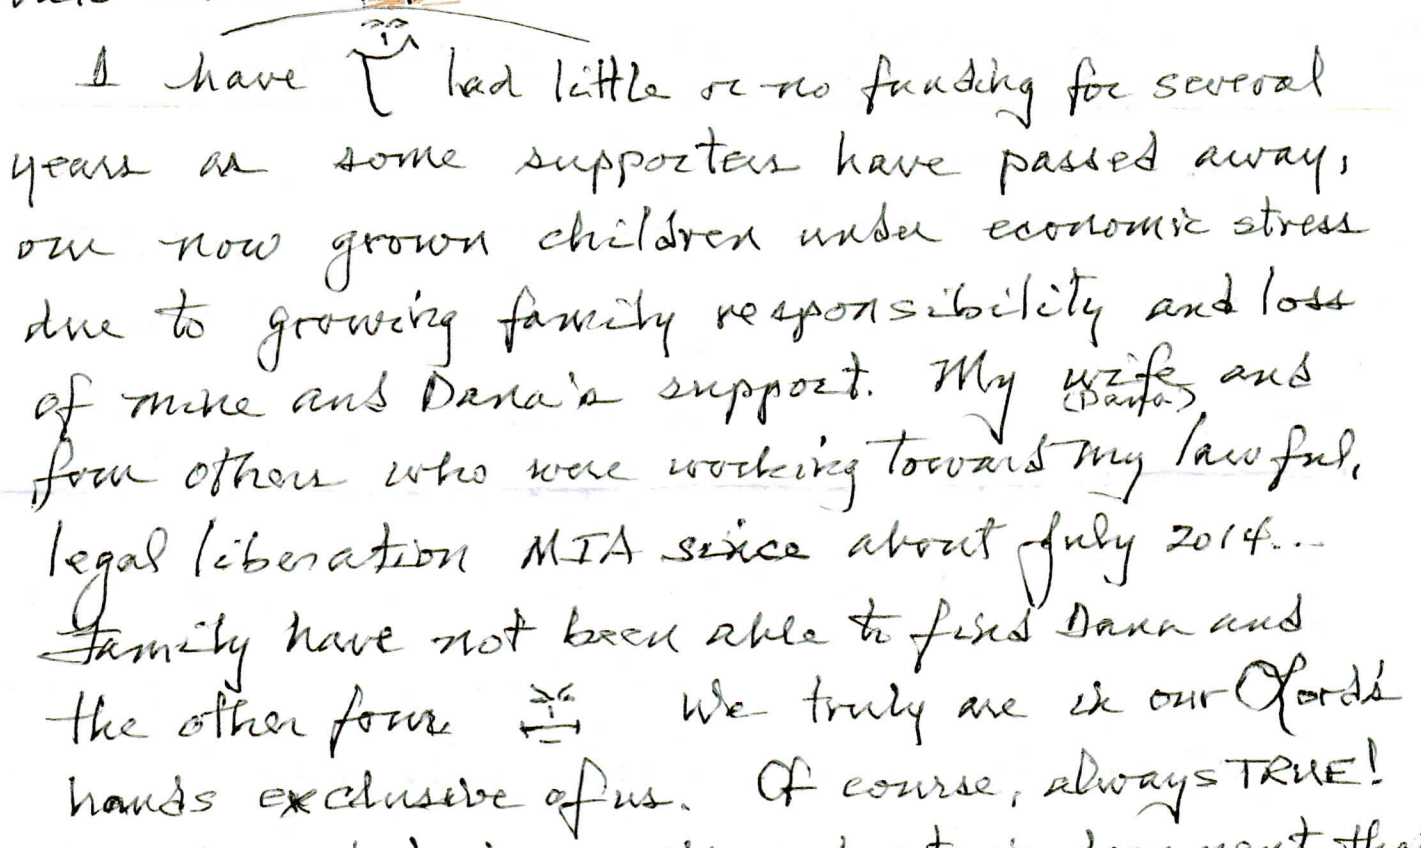 I have had little or no funding for several
years as some supporters have passed away,
our now grown children under economic stress
due to growing family responsibility and loss
of mine and Dana's support. My wife and
(Dana)
four others who were working toward my lawful,
legal liberation MIA since about July 2014...
Family have not been able to find Dana and
the other four. We truly are in our Lord's
hands exclusive of us. Of course, always TRUE!